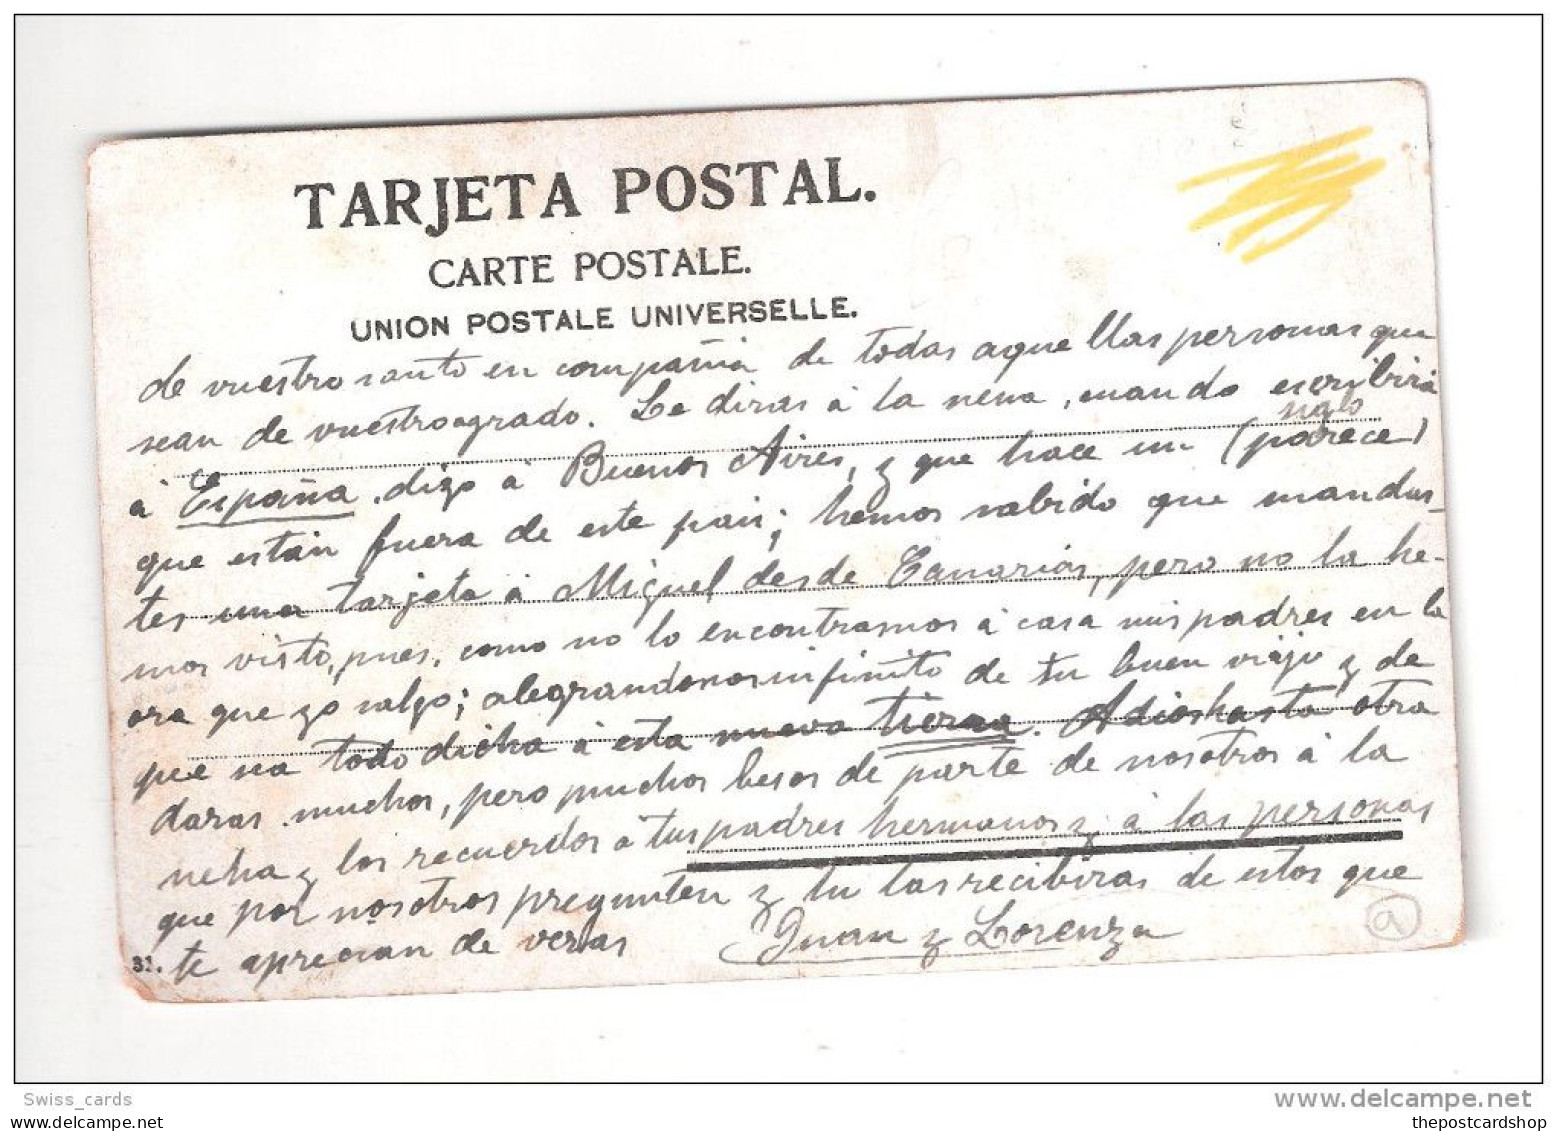 TARJETA POSTAL.
CARTE POSTALE.
UNION POSTALE UNIVERSELLE.
de vuestro santo en compañia de todas aquellas personas que
sean de vuestro agrado. Le diras á la nena, cuando escribirá
siglo
á España, digo á Buenos Aires, y que hace un (parece)
que están fuera de este pais; hemos sabido que mandas-
tes una tarjeta á Miguel desde Canarias, pero no la he-
mos visto, pues, como no lo encontramos á casa mis padres en la
ora que yo salgo; alegrandonos infinito de tu buen viaje y de
que na todo dicha á esta nueva tierra. Adios hasta otra
daras muchos, pero muchos besos de parte de nosotros á la
neha y los recuerdos a tus padres hermanos y á las personas
que por nosotros pregunten y tu las recibiras de estos que
te aprecian de veras Juan y Lorenza
31.
a
Swiss_cards
www.delcampe.net
the postcard shop
thepostcardshop